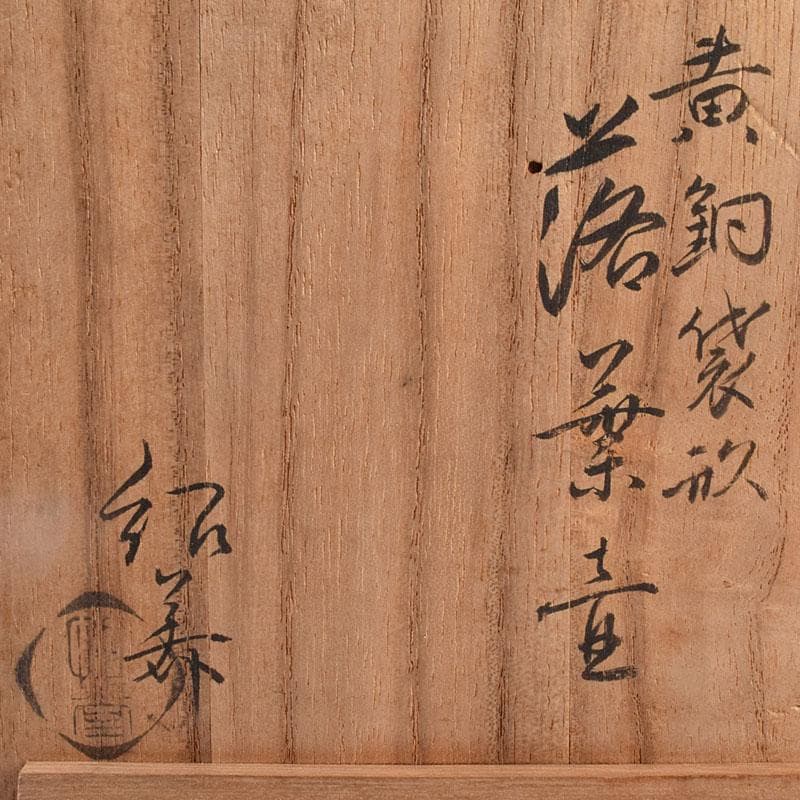 黄銅袋形
落葉壷
紹